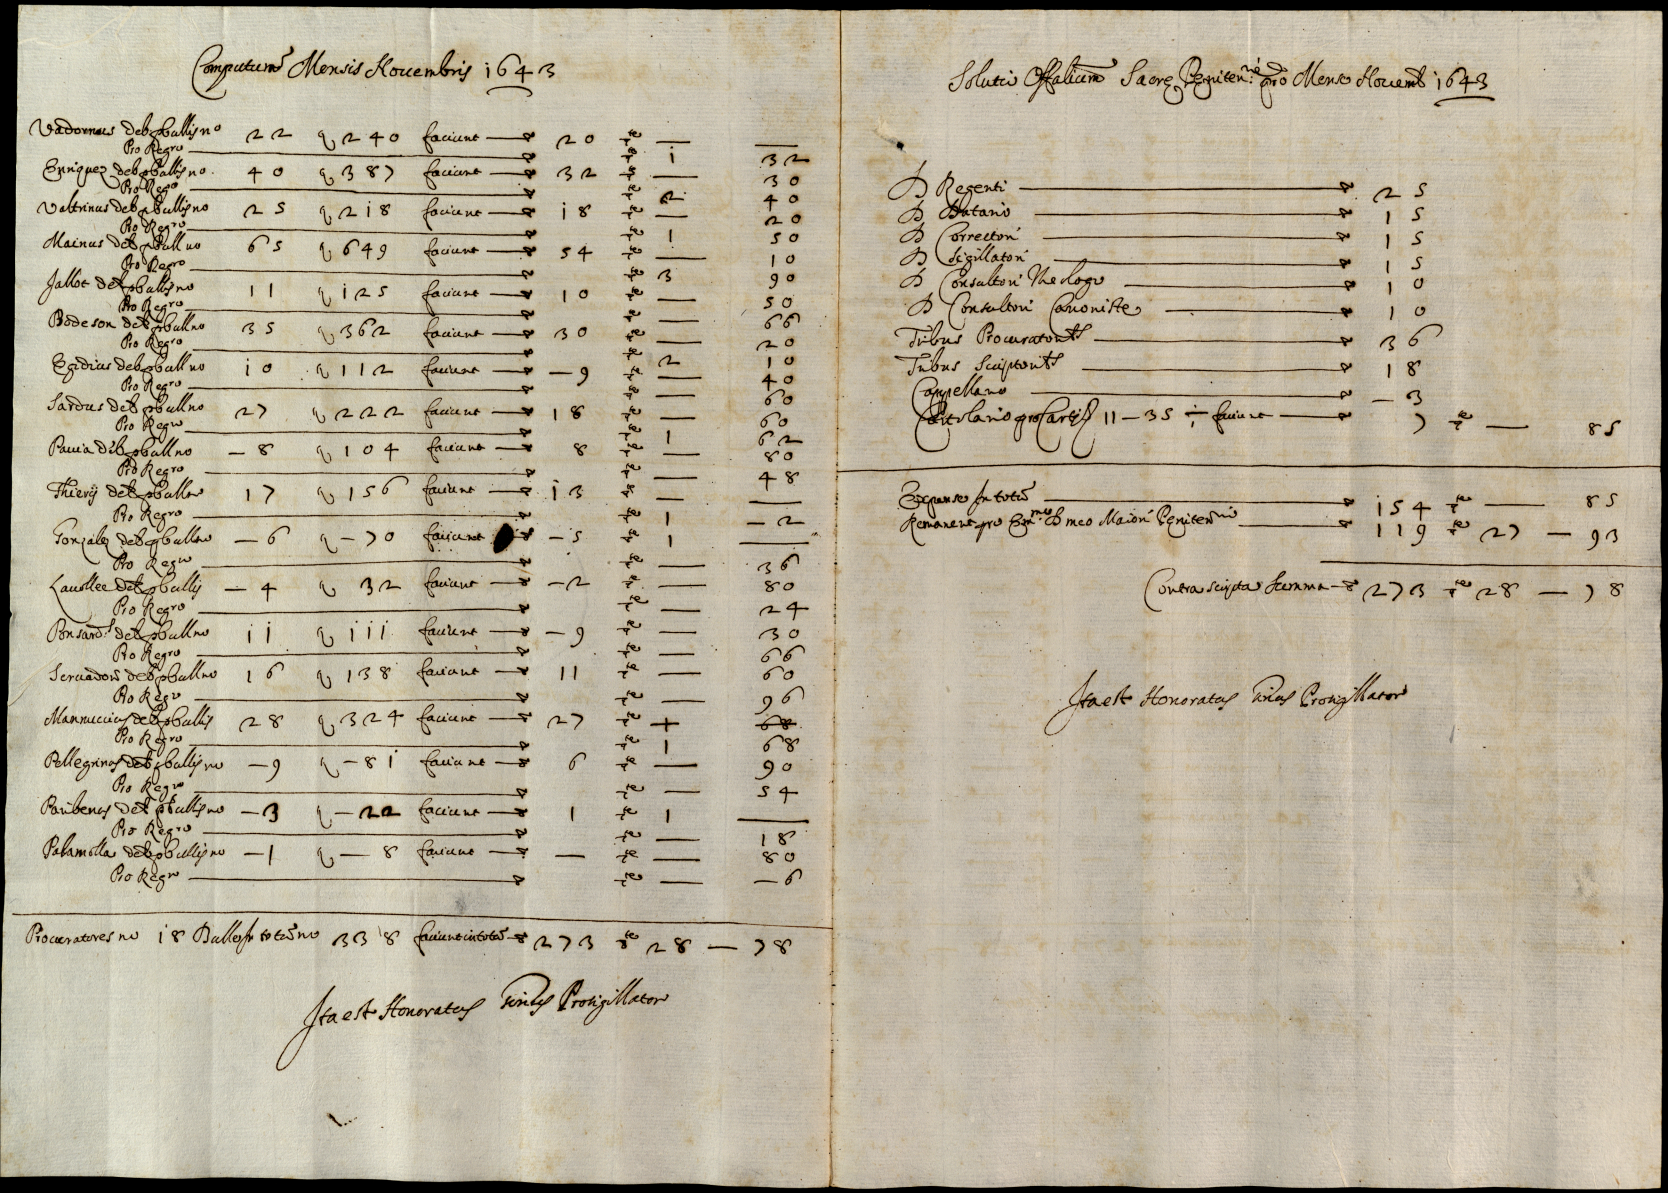 Computum Mensis Nouembris 1643
Vadornus deb. p bullis no 22 q 240 faciunt — 20 — —
Pro Regro — 1 32
Enriquez deb. p bullis no 40 q 387 faciunt — 32 — 30
Pro Regro — 2 40
Valtrinus deb. p bullis no 25 q 218 faciunt — 18 — 20
Pro Regro — 1 50
Mainus deb. p bull no 65 q 649 faciunt — 54 — 10
Pro Regro — 3 90
Jallot deb. p bullis no 11 q 125 faciunt — 10 — 50
Pro Regro — 66
Bodeson deb. p bull no 35 q 362 faciunt — 30 — 20
Pro Regro — 2 10
Egidius deb. p bull no 10 q 112 faciunt — 9 — 40
Pro Regro — 60
Sardus deb. p bull no 27 q 222 faciunt — 18 — 60
Pro Regro — 1 62
Pauia deb. p bull no — 8 q 104 faciunt — 8 — 80
Pro Regro — 48
Thierij deb. p bull no 17 q 156 faciunt — 13 — —
Pro Regro — 1 — 2
Gonzalez deb. p bull no — 6 q — 70 faciunt — 5 1 —
Pro Regro — 36
Lauollee deb. p bullis — 4 q 32 faciunt — 2 — 80
Pro Regro — 24
Ponsard. deb. p bull no 11 q 111 faciunt — 9 — 30
Pro Regro — 66
Seruadors deb. p bull no 16 q 138 faciunt — 11 — 60
Pro Regro — 96
Mannuccius deb. p bullis 28 q 324 faciunt — 27 — 68
Pro Regro — 1 68
Pellegrinus deb. p bullis no — 9 q — 81 faciunt — 6 — 90
Pro Regro — 54
Paribenus deb. p bullis no — 3 q — 22 faciunt — 1 1 —
Pro Regro — 18
Palamolla deb. p bullis no — 1 q — 8 faciunt — — — 80
Pro Regro — — 6
Procuratores no 18 Bulle in totum no 338 faciunt in totum 273 28 — 78
Ita est Honoratus Protigillator
Solutio Offalium Sacrę Pęniten.rię pro Mense Nouemb 1643
D Regenti — 25
D Datario — 15
D Correctori — 15
D Sigillatori — 15
D Consultori Theologo — 10
D Consultori Canoniste — 10
Tribus Procuratorib.s — 36
Tribus Scriptorib.s — 18
Cappellano — 3
Cartolario pro Cartis 11 — 35 ÷ faciunt — 7 — 85
Expense in totum — 154 — 85
Remanent pro Em.mo D meo Maiori Peniten.rio — 119 27 — 93
Contra scripta summa — 273 28 — 78
Ita est Honoratus Protigillator